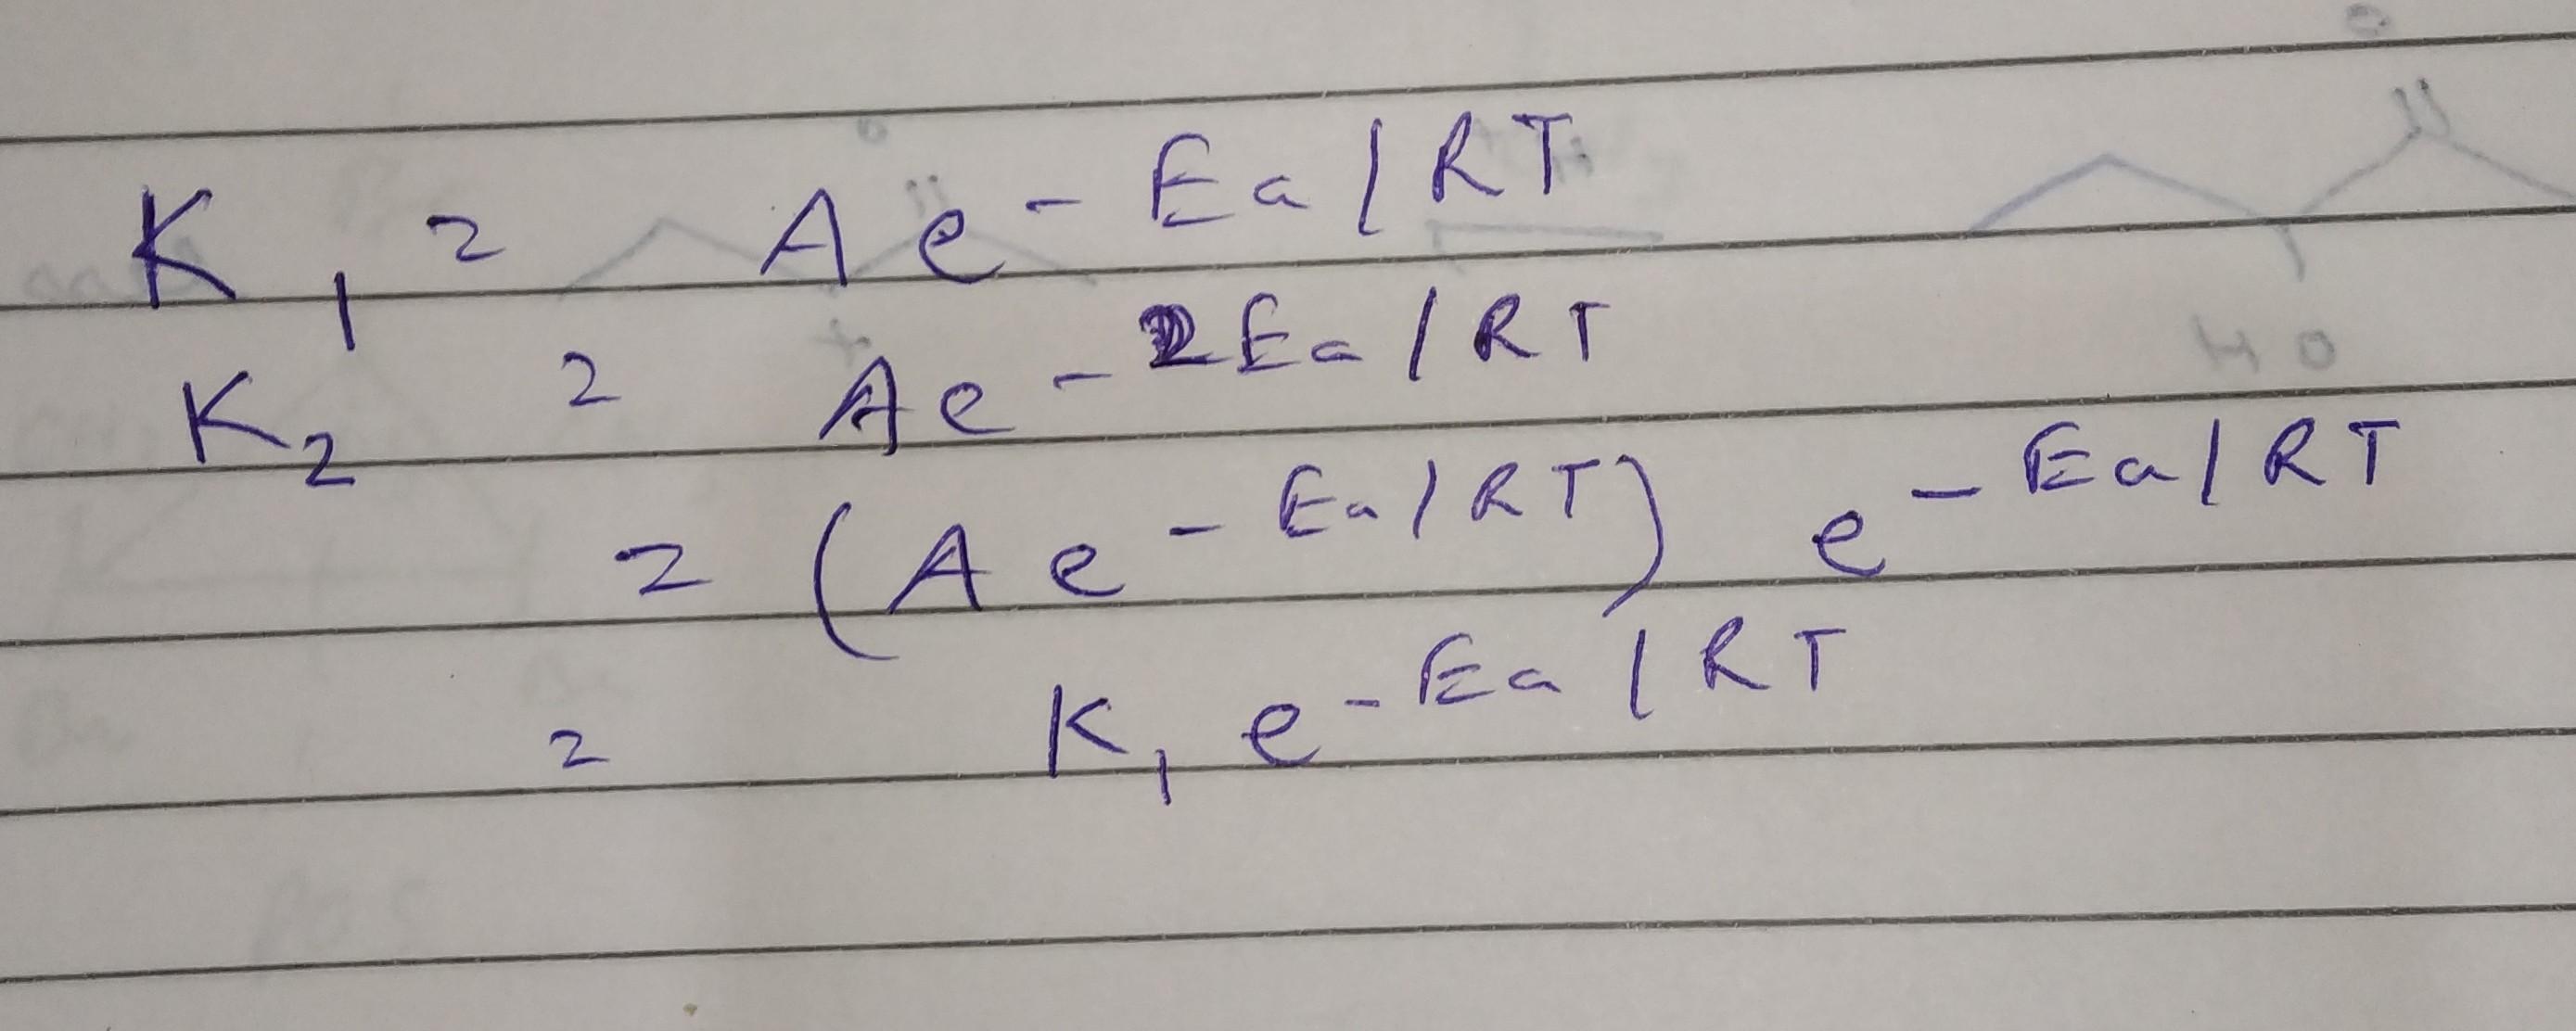 K₁ = Ae^-Ea/RT
K₂ = Ae^-2Ea/RT
= (Ae^-Ea/RT) e^-Ea/RT
= K₁e^-Ea/RT